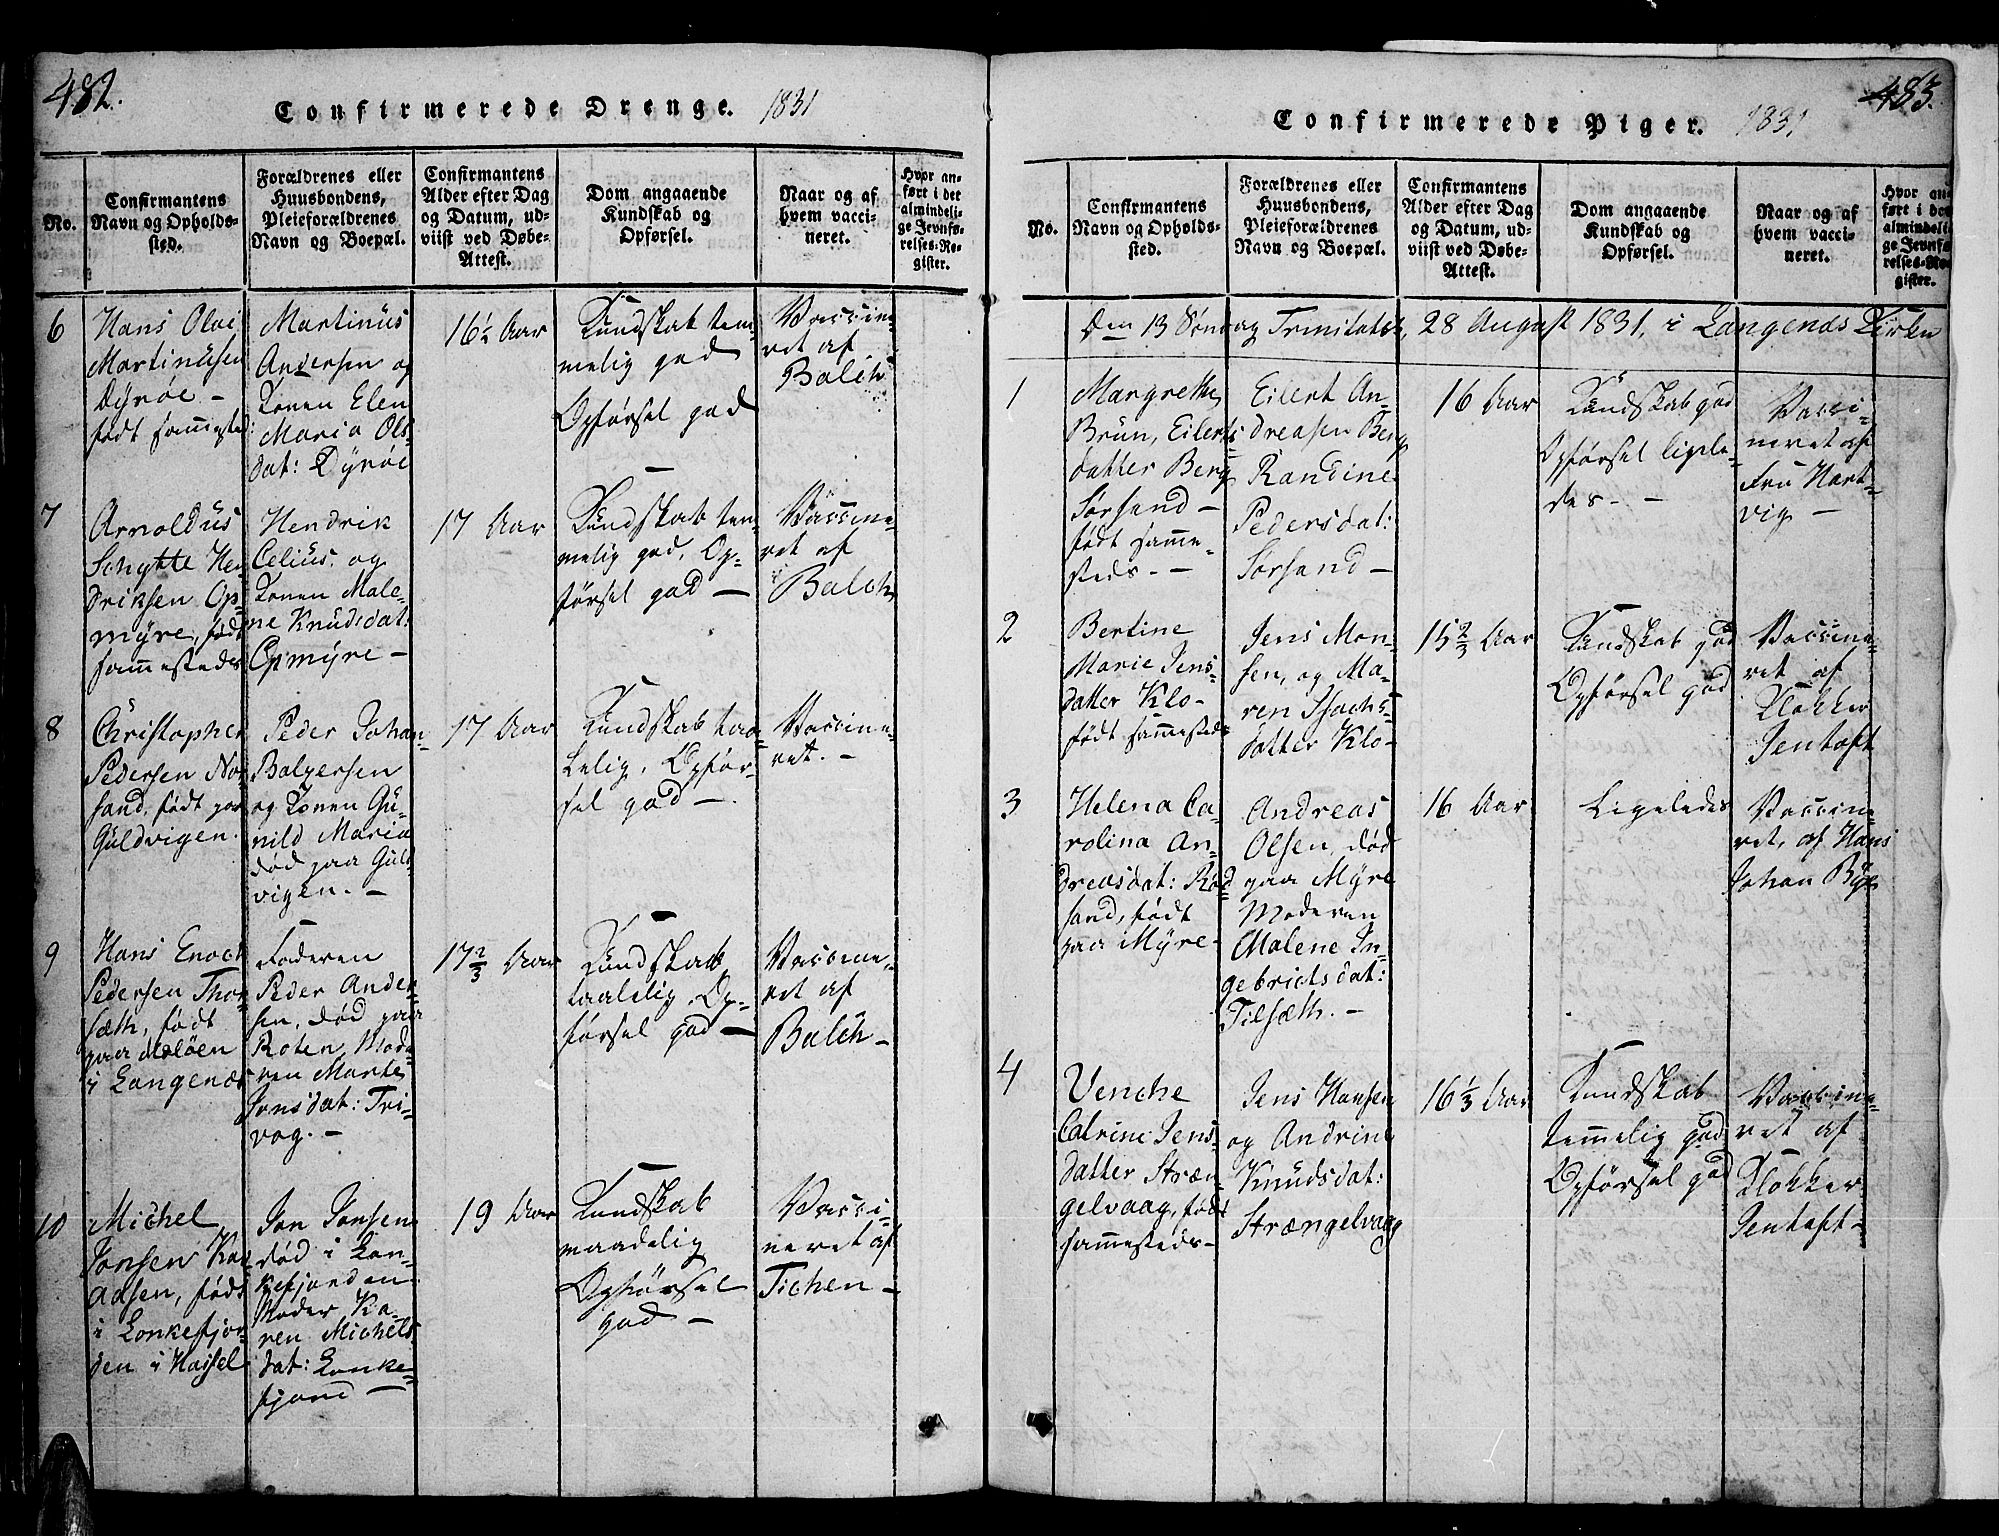 482.
Confirmerede Drenge. 1831
No.
Confirmantens
Navn og Opholds-
sted.
Forældrenes eller
Huusbondens,
Pleieforældrenes
Navn og Boepæl.
Confirmantens
Alder efter Dag
og Datum, ud-
viist ved Døbe-
Attest.
Dom angaaende
Kundskab og
Opførsel.
Naar og af
hvem vacci-
neret.
Hvor an-
ført i det
almindeli-
ge Jevnfø-
relses-Re-
gister.
6
Hans Olai
Martinusen
Dÿröe -
født sammested:
Martinus
Andersen og
Konen Elen
Maria Ols-
dat: Dÿröe
16½ Aar
Kundskab tem-
melig god
Opførsel god
Vaccine-
ret af
Balch
7
Arnoldus
Schytte Hen-
driksen Op-
mÿre, født
sammesteds
Hendrik
Celius og
Konen Male-
ne Knudsdat:
Opmÿre -
17 Aar
Kundskab tem-
melig god, Op-
førsel god -
Vaccine-
ret af
Balch
8
Christopher
Pedersen Nor-
sand, født paa
Guldvigen.
Peder Johan
Balzersen
og Konen Gu-
nild Maria
død paa Guld-
vigen. -
17 Aar
Kundskab taa-
lelig, Opfør-
sel god -
Vaccine-
ret. -
9
Hans Enoch
Pedersen Thor-
sæth, født
paa
i Langenæs
Faderen
Peder Ander-
sen, død paa
Roten, Mode-
ren Marte
Jonsdat: Tri-
vog. -
17⅔ Aar
Kundskab
taalelig, Op-
førsel god -
Vaccine-
ret af
Balch -
10
Michel
Jonsen
født
i Lonkefjor-
den i Hassel
Jon Jonsen
død i Lon-
kefjorden
Moder Ka-
ren Michels-
dat: Lonke-
fjord -
19 Aar
Kundskab
maadelig
Opførsel
god -
Vacci-
neret af
Tichen -
483.
Confirmerede Piger. 1831
No.
Confirmantens
Navn og Opholds-
sted.
Forældrenes eller
Huusbondens,
Pleieforældrenes
Navn og Boepæl.
Confirmantens
Alder efter Dag
og Datum, ud-
viist ved Døbe-
Attest.
Dom angaaende
Kundskab og
Opførsel.
Naar og af
hvem vacci-
neret.
Hvor an-
ført i det
almindeli-
ge Jevnfø-
relses-Re-
gister.
Den 13 Søndag Trinitatis, 28 August 1831, i Langenæs Kirke
1
Margrethe
Brun, Eilerts-
datter Berg
Sørsand -
født samme-
steds. -
Eilert An-
dreasen Berg
Randine
Pedersdat:
Sørsand -
16 Aar
Kundskab god
Opførsel ligele-
des. -
Vacci-
neret af
Fru Hart-
vig -
2
Bertine
Marie Jens-
datter Klo -
født sammesteds
Jens Mon-
sen, og Ma-
ren Isachs-
datter Klo -
15⅔ Aar
Kundskab god
Opførsel god
Vaccine-
ret af
Klokker
Jentoft
3
Helena Ca-
rolina An-
dreasdat: Rød-
sand, født
paa Mÿre -
Andreas
Olsen, død
paa Mÿre
Moderen
Malene In-
gebrictsdat:
Tilsæth. -
16 Aar
Ligeledes
Vaccine-
ret, af Hans
Johan
4
Venche
Catrine Jens-
datter Stræn-
gelvaag, født
sammesteds -
Jens Hansen
og Andrine
Knudsdat:
Strængelvaag
16⅓ Aar
Kundskab
temmelig god
Opførsel god
Vaccine-
ret af
Klokker
Jentoft -